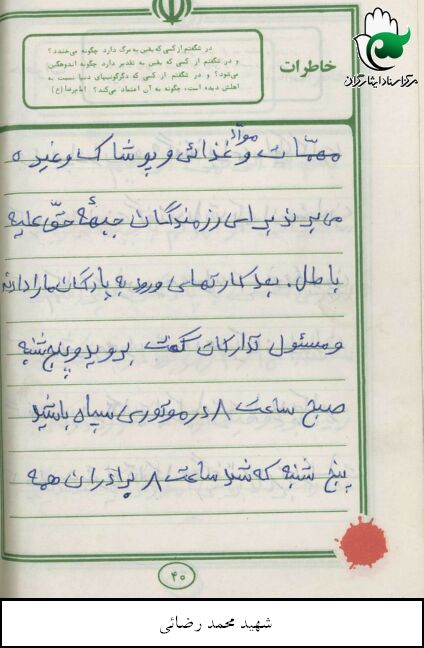 مرکز اسناد ایثارگران
خاطرات
در شگفتم از کسی که یقین به مرگ دارد چگونه می‌خندد؟
و در شگفتم از کسی که یقین به تقدیر دارد چگونه اندوهگین
می‌شود؟ و در شگفتم از کسی که دگرگونیهای دنیا نسبت به
اهلش دیده است، چگونه به آن اعتماد می‌کند؟ امام‌رضا (ع)
مهمّات و موادّ غذائی و پوشاک و غیره
می‌برند براس رزمندگان جبهۀ حقّ علیه
باطل. بعد کارتهاس ورود به پادگان مارا دادند
و مسئول تدارکات گفت بروید و پنج شنبه
صبح ساعت ۸ در موتوری سپاه باشید
پنج شنبه که شد ساعت ۸ برادران همه
۴۰
شهید محمد رضائی